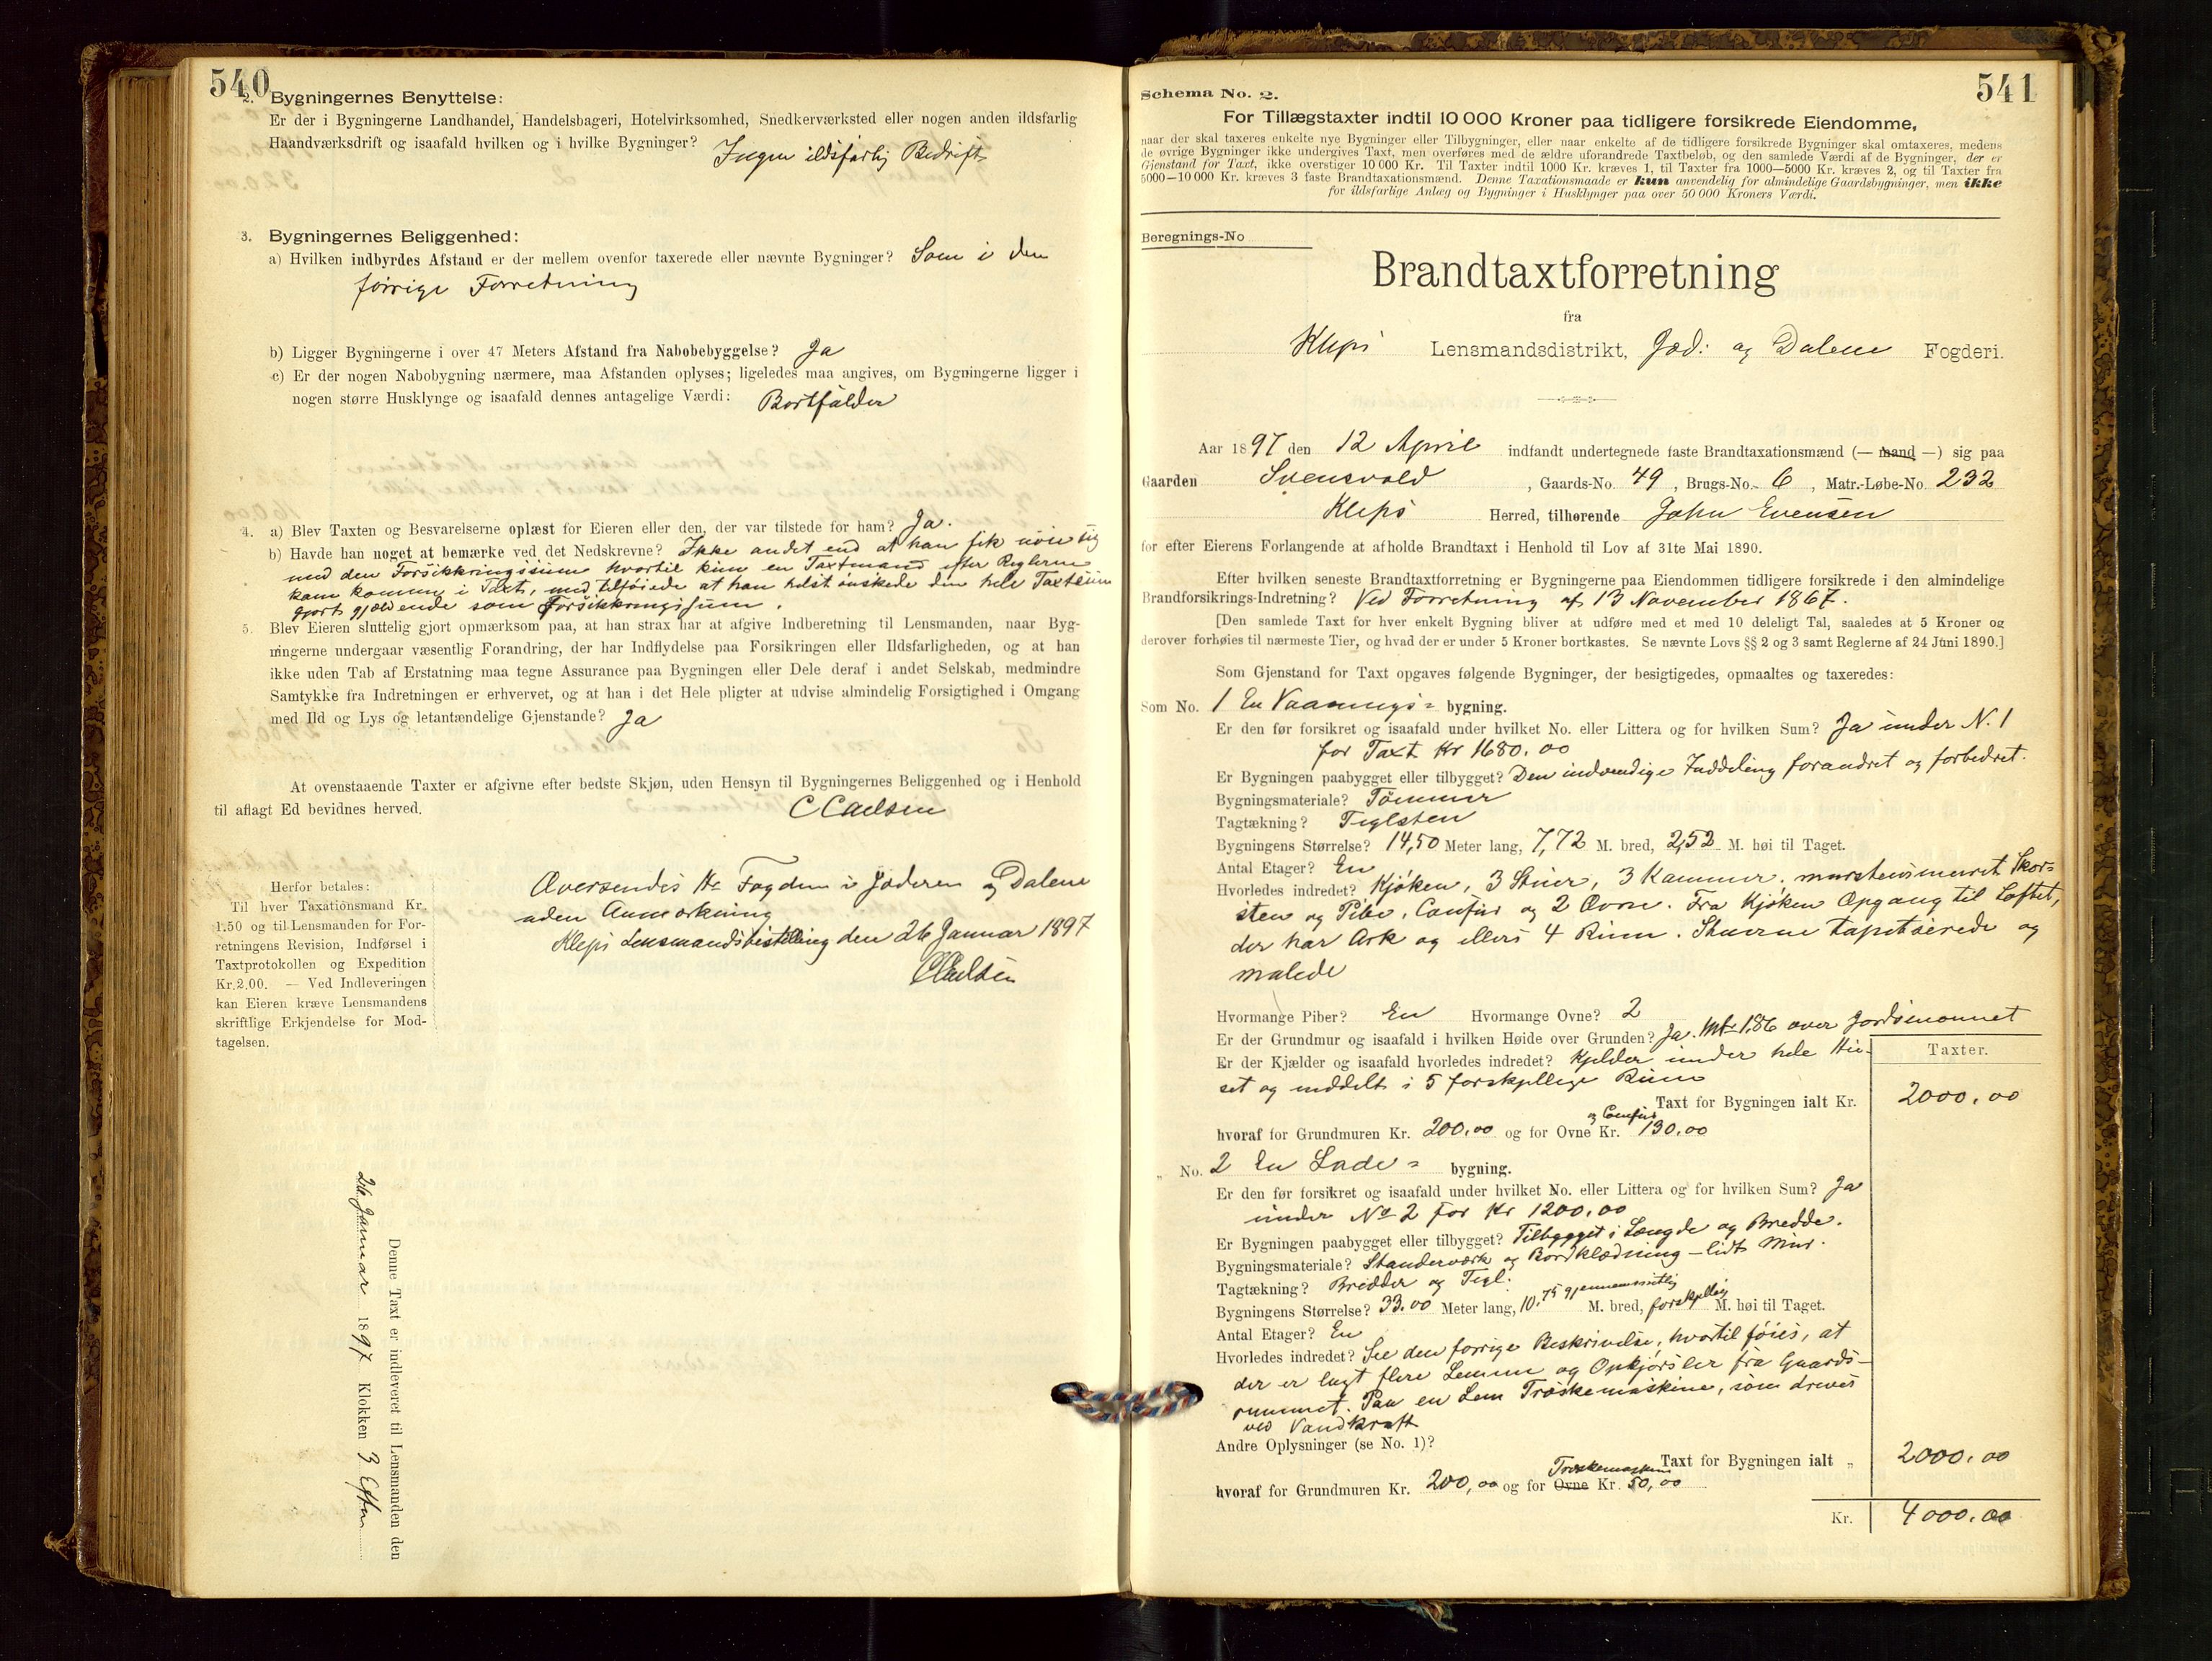 540
2. Bygningernes Benyttelse:
Er der i Bygningerne Landhandel, Handelsbageri, Hotelvirksomhed, Snedkerværksted eller nogen anden ildsfarlig
Haandværksdrift og isaafald hvilken og i hvilke Bygninger? Ingen ildsfarlig Bedrift
3. Bygningernes Beliggenhed:
a) Hvilken indbyrdes Afstand er der mellem ovenfor taxerede eller nævnte Bygninger? Som i den
førrige Forretning
b) Ligger Bygningerne i over 47 Meters Afstand fra Nabobebyggelse? Ja
c) Er der nogen Nabobygning nærmere, maa Afstanden oplyses; ligeledes maa angives, om Bygningerne ligger i
nogen større Husklynge og isaafald dennes antagelige Værdi: Bortfalder
4. a) Blev Taxten og Besvarelserne oplæst for Eieren eller den, der var tilstede for ham? Ja.
b) Havde han noget at bemærke ved det Nedskrevne? Ikke andet end at han fik nøie sig
med den Forsikkringssum hvortil kun en Taxtmand efter Reglerne
kam komme i Taxt, med tilføiede at han helst ønskede den hele Taxtsum
gjort gjældende som Forsikkringssum.
5. Blev Eieren sluttelig gjort opmærksom paa, at han strax har at afgive Indberetning til Lensmanden, naar Byg-
ningerne undergaar væsentlig Forandring, der har Indflydelse paa Forsikringen eller Ildsfarligheden, og at han
ikke uden Tab af Erstatning maa tegne Assurance paa Bygningen eller Dele deraf i andet Selskab, medmindre
Samtykke fra Indretningen er erhvervet, og at han i det Hele pligter at udvise almindelig Forsigtighed i Omgang
med Ild og Lys og letantændelige Gjenstande? Ja
At ovenstaaende Taxter er afgivne efter bedste Skjøn, uden Hensyn til Bygningernes Beliggenhed og i Henhold
til aflagt Ed bevidnes herved. C Carlsen
Oversendes Hr Fogden i Jæderen og Dalene
uden Anmærkning
Klepp Lensmandsbestilling den 26 Januar 1897
C Carlsen
Herfor betales:
Til hver Taxationsmand Kr.
1.50 og til Lensmanden for For-
retningens Revision, Indførsel i
Taxtprotokollen og Expedition
Kr. 2.00. — Ved Indleveringen
kan Eieren kræve Lensmandens
skriftlige Erkjendelse for Mod-
tagelsen.
Denne Taxt er indleveret til Lensmanden den
26 Januar 1897 Klokken 3 Eftm
541
Schema No. 2.
For Tillægstaxter indtil 10 000 Kroner paa tidligere forsikrede Eiendomme,
naar der skal taxeres enkelte nye Bygninger eller Tilbygninger, eller naar enkelte af de tidligere forsikrede Bygninger skal omtaxeres, medens
de øvrige Bygninger ikke undergives Taxt, men overføres med de ældre uforandrede Taxtbeløb, og den samlede Værdi af de Bygninger, der er
Gjenstand for Taxt, ikke overstiger 10 000 Kr. Til Taxter indtil 1000 Kr. kræves 1, til Taxter fra 1000—5000 Kr. kræves 2, og til Taxter fra
5000—10 000 Kr. kræves 3 faste Brandtaxationsmænd. Denne Taxationsmaade er kun anvendelig for almindelige Gaardsbygninger, men ikke
for ildsfarlige Anlæg og Bygninger i Husklynger paa over 50 000 Kroners Værdi.
Beregnings-No
Brandtaxtforretning
fra
Klepp Lensmandsdistrikt, Jæd: og Dalene Fogderi.
Aar 1897 den 12 April indfandt undertegnede faste Brandtaxationsmænd (— mand —) sig paa
Gaarden Svensvold, Gaards-No. 49, Brugs-No. 6, Matr.-Løbe-No. 232
Klepp Herred, tilhørende John Evensen
for efter Eierens Forlangende at afholde Brandtaxt i Henhold til Lov af 31te Mai 1890.
Efter hvilken seneste Brandtaxtforretning er Bygningerne paa Eiendommen tidligere forsikrede i den almindelige
Brandforsikrings-Indretning? Ved Forretning af 13 November 1867.
[Den samlede Taxt for hver enkelt Bygning bliver at udføre med et med 10 deleligt Tal, saaledes at 5 Kroner og
derover forhøies til nærmeste Tier, og hvad der er under 5 Kroner bortkastes. Se nævnte Lovs §§ 2 og 3 samt Reglerne af 24 Juni 1890.]
Som Gjenstand for Taxt opgaves følgende Bygninger, der besigtigedes, opmaaltes og taxeredes:
Som No. 1 En Vaanings= bygning.
Er den før forsikret og isaafald under hvilket No. eller Littera og for hvilken Sum? Ja under N. 1
for Taxt Kr 1680.00
Er Bygningen paabygget eller tilbygget? Den indvendige Inddeling forandret og forbedret.
Bygningsmateriale? Tømmer
Tagtækning? Teglsten
Bygningens Størrelse? 14,50 Meter lang, 7,72 M. bred, 2,52 M. høi til Taget.
Antal Etager? En
Hvorledes indredet? Kjøken, 3 Stuer, 3 Kammer. murstensmuret Skor-
sten og Pibe, Comfur og 2 Ovne. Fra Kjøken Opgang til Loftet,
der har Ark og ellers 4 Rum. Stuerne tapetserede og
malede
Hvormange Piber? En Hvormange Ovne? 2
Er der Grundmur og isaafald i hvilken Høide over Grunden? Ja. Mtr 1,86 over Jordsmonnet
Er der Kjælder og isaafald hvorledes indredet? Kjelder under hele Hu-
set og inddelt i 5 forskjellige Rum
Taxter.
Taxt for Bygningen ialt Kr. 2000.00
hvoraf for Grundmuren Kr. 200.00 og for Ovne og Comfur Kr. 130.00
" No. 2 En Lade= bygning.
Er den før forsikret og isaafald under hvilket No. eller Littera og for hvilken Sum? Ja
under No 2 for Kr 1200.00
Er Bygningen paabygget eller tilbygget? Tilbygget i Længde og Bredde.
Bygningsmateriale? Standerværk og Bordklædning – lidt Mur.
Tagtækning? Brædder og Tegl.
Bygningens Størrelse? 33.00 Meter lang, 10.75 gjennemsnitlig M. bred, forskjellig M. høi til Taget.
Antal Etager? En
Hvorledes indredet? See den forrige Beskrivelse, hvortil føies, at
der er lagt flere Lemme og Opkjørsler fra Gaards-
rummet. Paa en Lem Trøskemaskine, som drives
ved Vandkraft
Andre Oplysninger (se No. 1)?
Taxt for Bygningen ialt " 2000.00
hvoraf for Grundmuren Kr. 200,00 og for Ovne Trøskemaskine Kr. 50,00
Kr. 4000.00